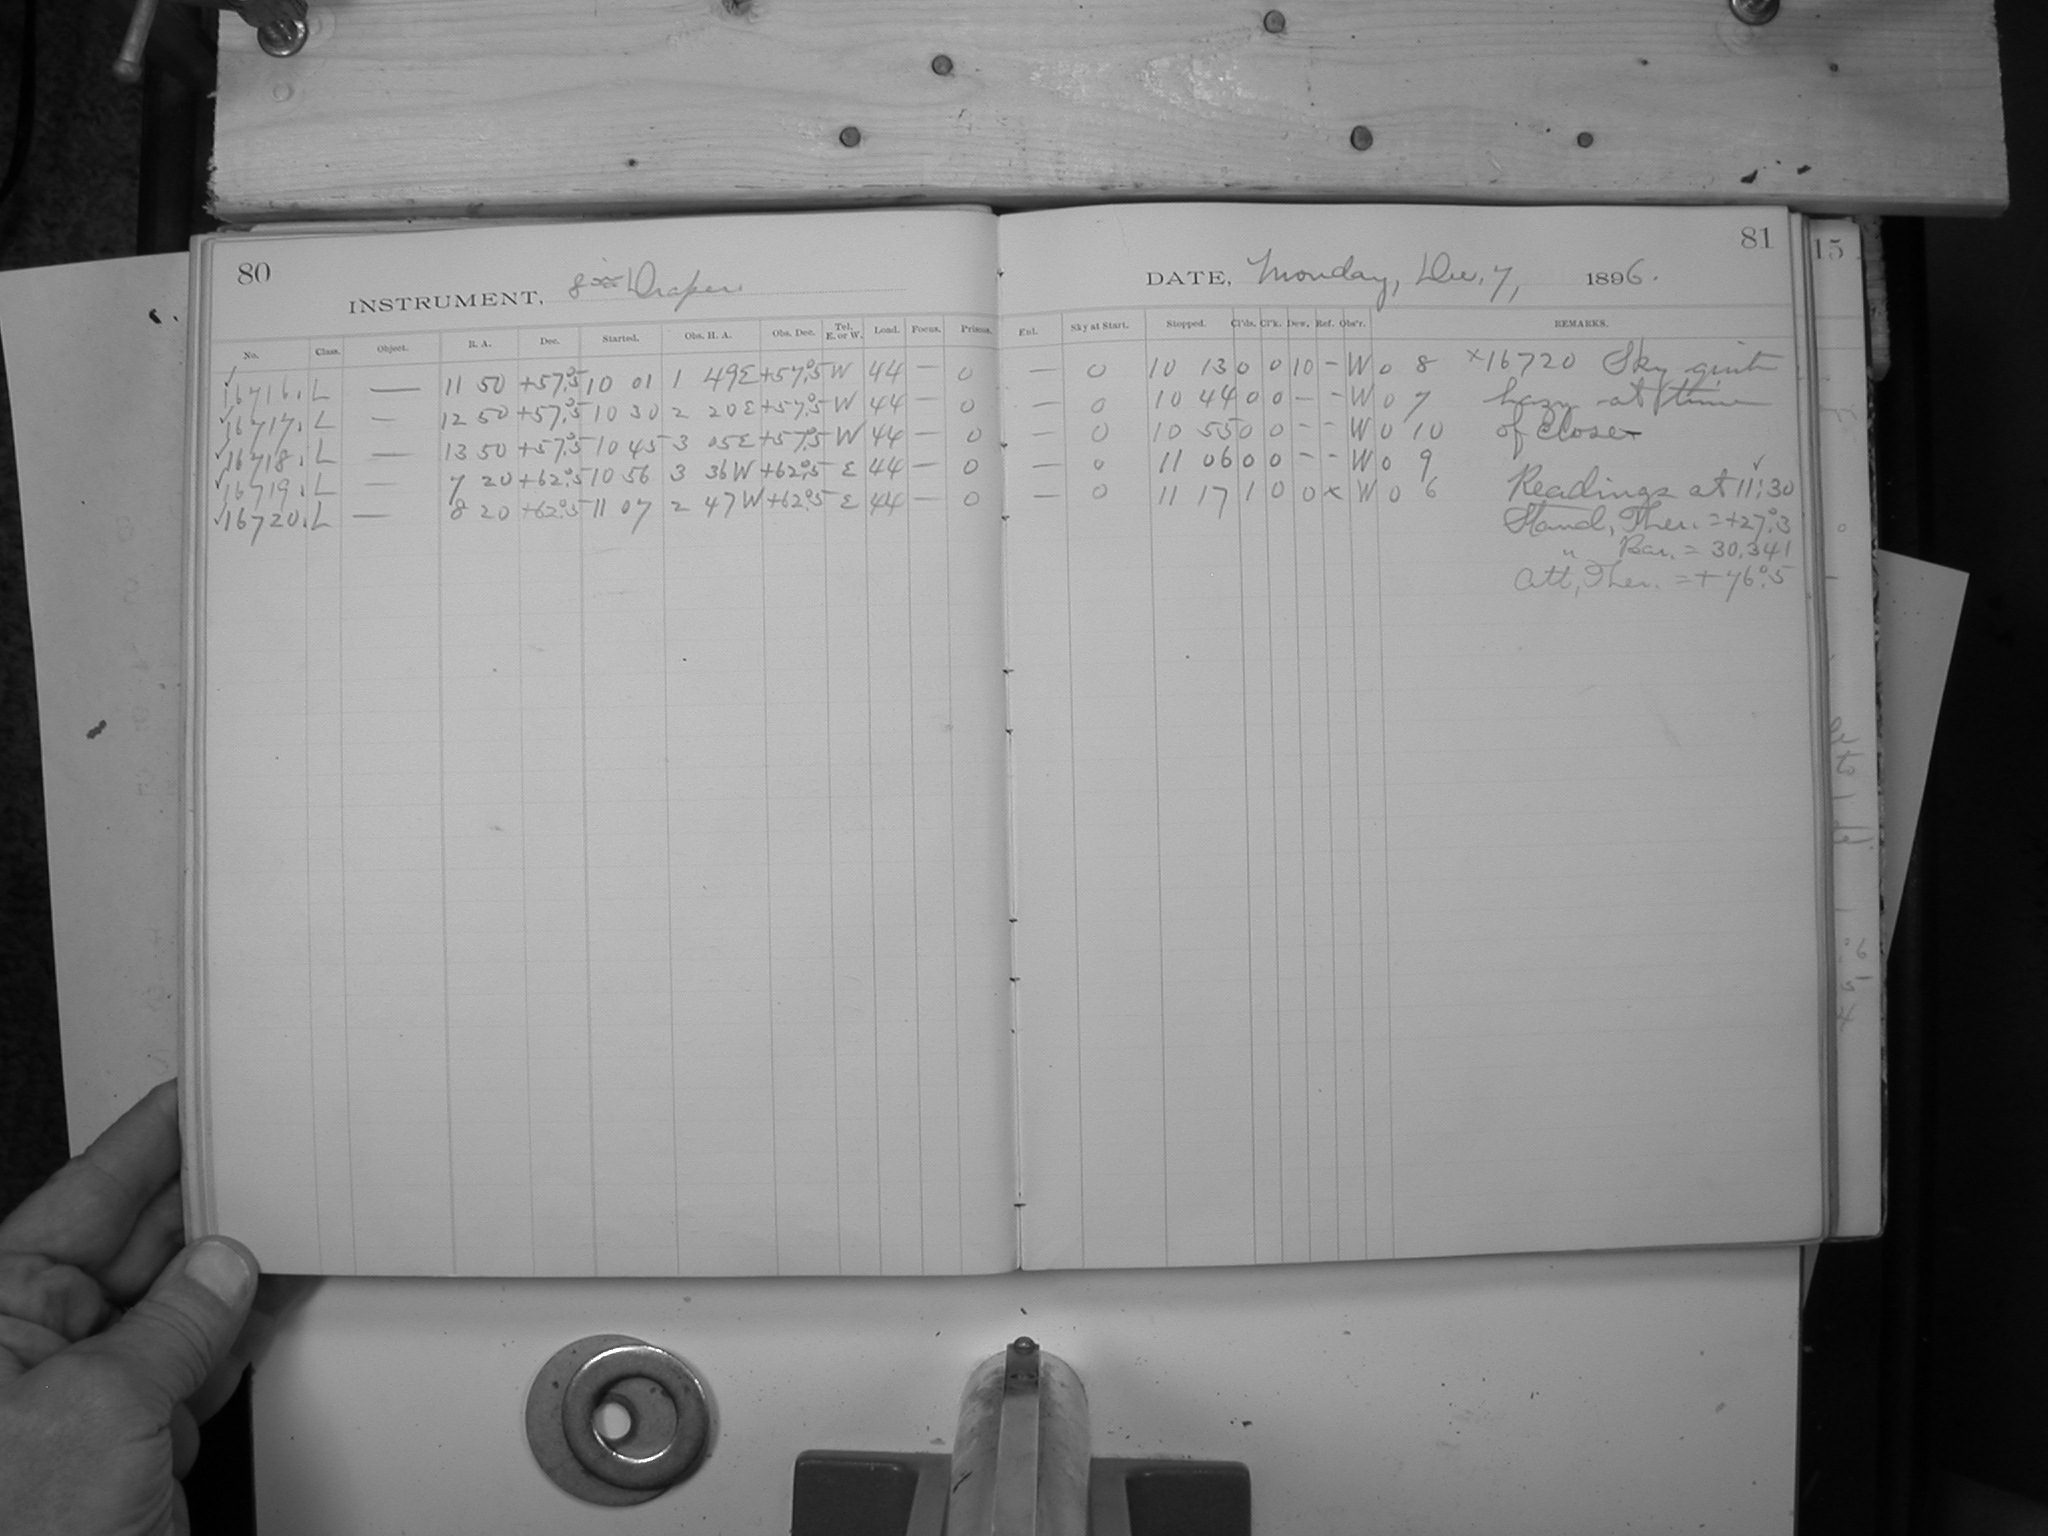 80
INSTRUMENT, 8 in Draper.
No. Class. Object. R. A. Dec. Started. Obs. H. A. Obs. Dec. Tel. E. or W. Load. Focus. Prisms.
16716. L — 11 50 +57°.5 10 01 1 49E +57°.5 W 44 — 0
16717. L — 12 50 +57°.5 10 30 2 20E +57°.5 W 44 — 0
16718. L — 13 50 +57°.5 10 45 3 05E +57°.5 W 44 — 0
16719. L — 7 20 +62°.5 10 56 3 36W +62°.5 E 44 — 0
16720. L — 8 20 +62°.5 11 07 2 47W +62°.5 E 44 — 0
81
DATE, Monday, Dec. 7, 1896.
Enl. Sky at Start. Stopped. Cl'ds. Cl'k. Dew. Ref. Obs'r. REMARKS.
— 0 10 13 0 0 10 – W 0 8 ×16720 Sky quite
— 0 10 44 0 0 – – W 0 7 hazy at time
— 0 10 55 0 0 – – W 0 10 of close
— 0 11 06 0 0 – – W 0 9
— 0 11 17 1 0 0 × W 0 6 Readings at 11:30
Stand. Ther. = +27°.3
" Bar. = 30.341
Att. Ther. = +76°.5
15